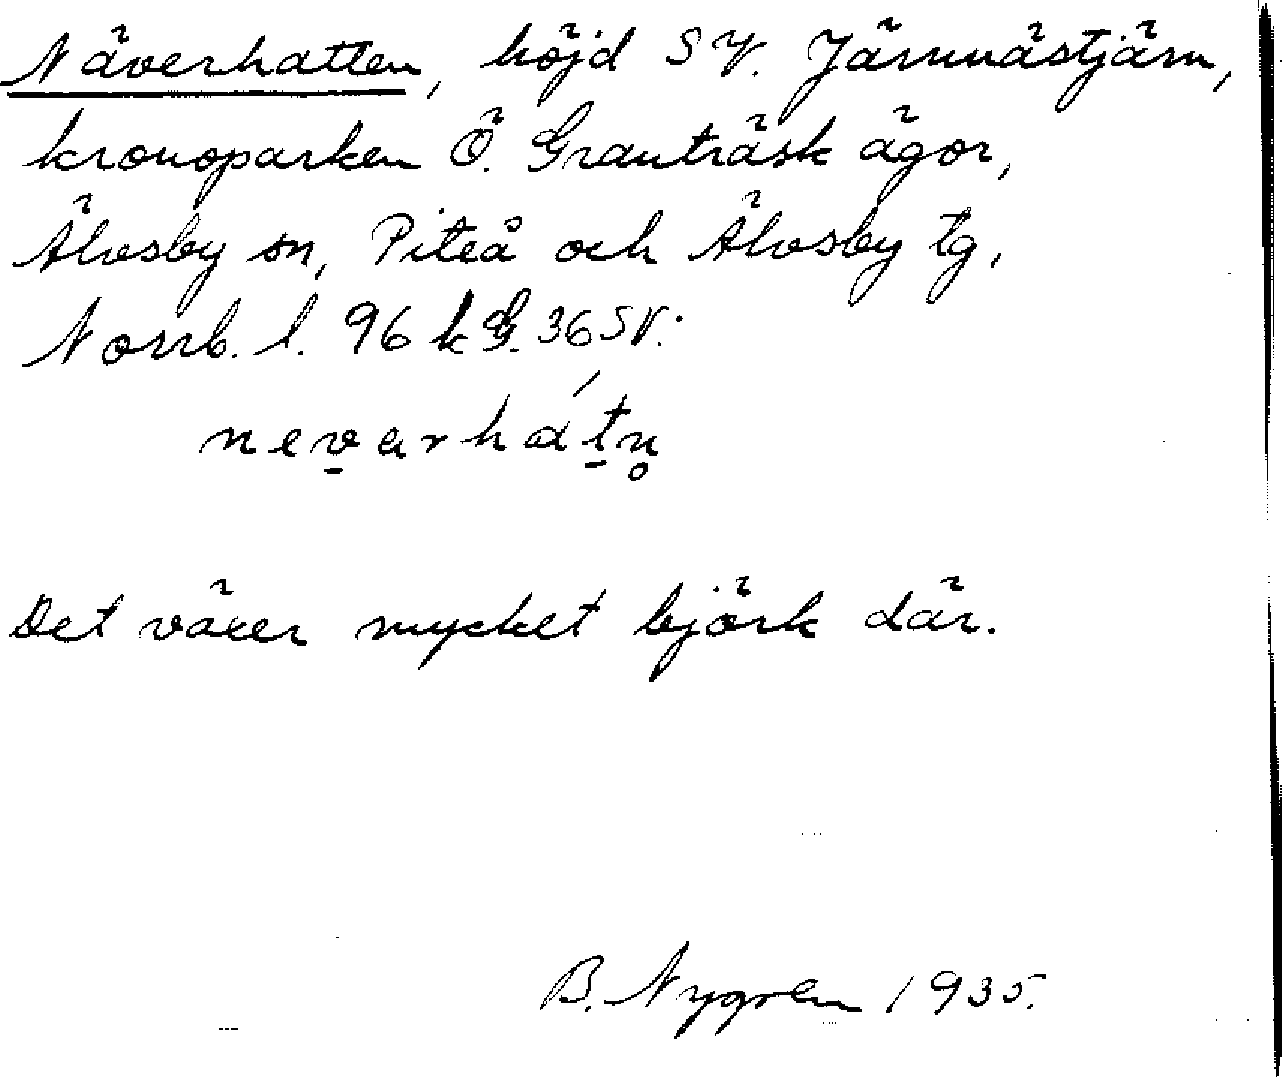 Näverhatten, höjd SV. Järnnästjärn,
kronoparken Ö. Granträsk ägor,
Älvsby sn, Piteå och Älvsby tg,
Norrb. l. 96 k G. 36 SV.
nevarhátn̥
Det växer mycket björk där.
B. Nygren 1935.